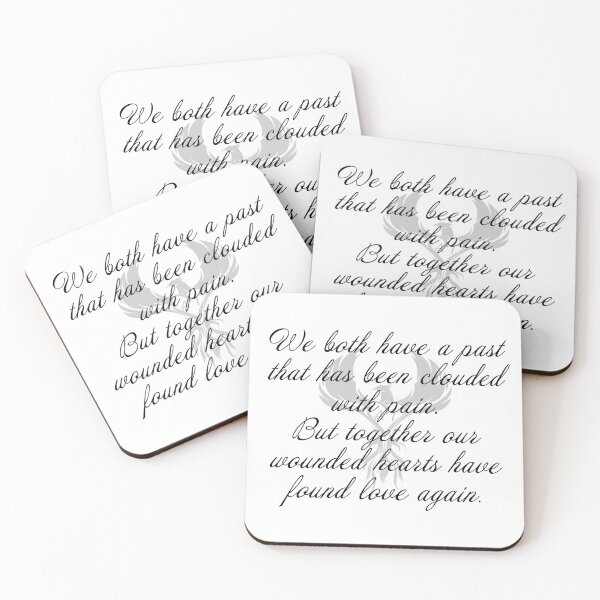 We both have a past
that has been clouded
with pain.
But together our
We both have a past
that has been clouded
with pain.
But together our
wounded hearts have
We both have a past
that has been clouded
with pain.
But together our
wounded hearts
found love
We both have a past
that has been clouded
with pain.
But together our
wounded hearts have
found love again.